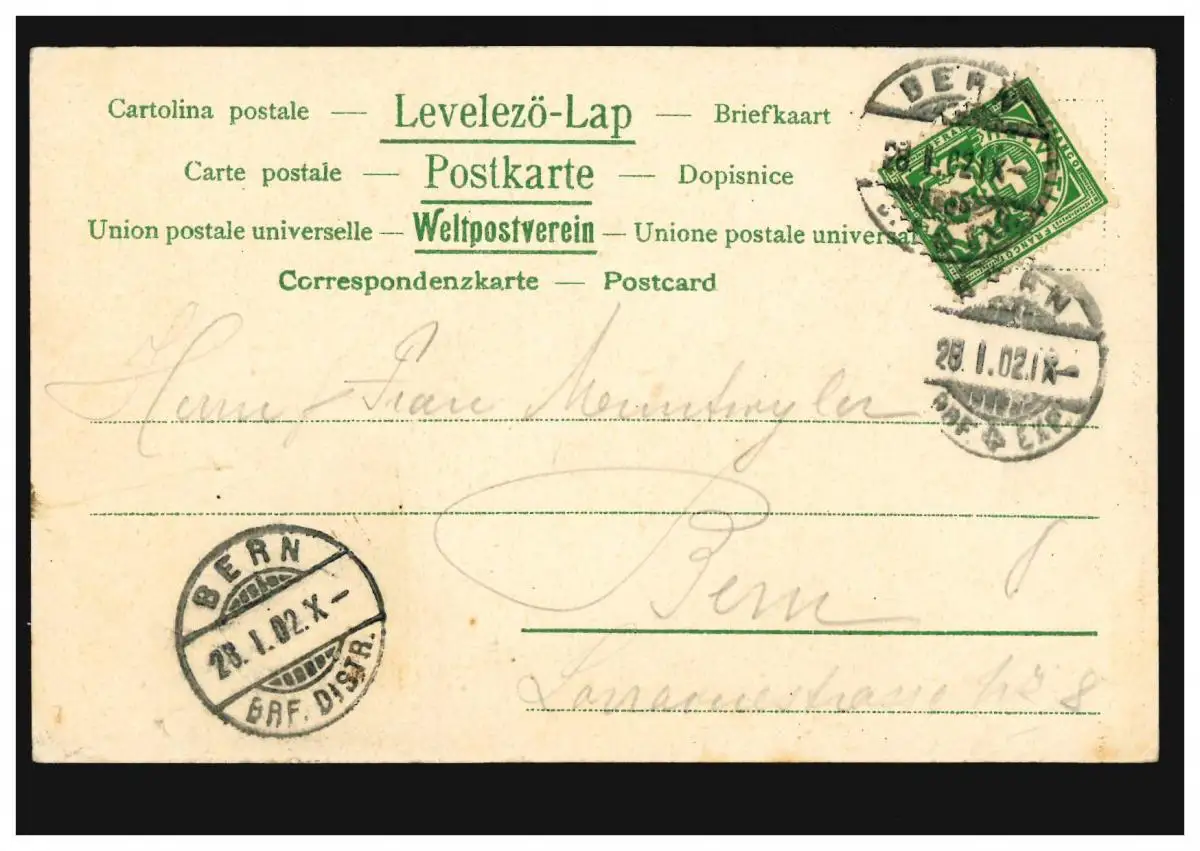 Cartolina postale — Levelezö-Lap — Briefkaart
Carte postale — Postkarte — Dopisnice
Union postale universelle — Weltpostverein — Unione postale universa
Correspondenzkarte — Postcard
BERN
28.I.02.IX–
FRANCO
HELVETIA
FRANCO
BERN
28.I.02.IX–
BRF. EXP.
Herrn & Frau
Bern
strasse No 8
BERN
28.I.02.X–
BRF. DISTR.